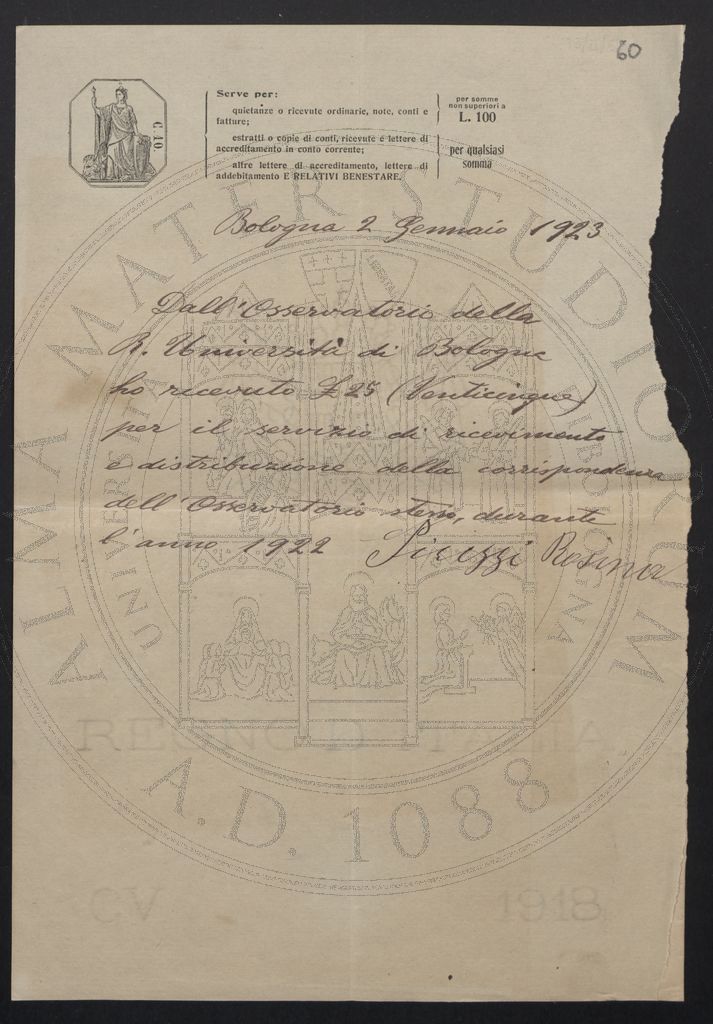 60
C. 10.
Serve per:
quietanze o ricevute ordinarie, note, conti e
fatture;
estratti o copie di conti, ricevute e lettere di
accreditamento in conto corrente;
altre lettere di accreditamento, lettere di
addebitamento E RELATIVI BENESTARE.
per somme
non superiori a
L. 100
per qualsiasi
somma
Bologna 2 Gennaio 1923
Dall'Osservatorio della
R. Università di Bologna
ho ricevuto £ 25 (Venticinque)
per il servizio di ricevimento
e distribuzione della corrispondenza
dell'Osservatorio stesso, durante
l'anno 1922 Rosina
ALMA MATER STUDIORUM
A.D. 1088
REGNO D'ITALIA
CV 1918